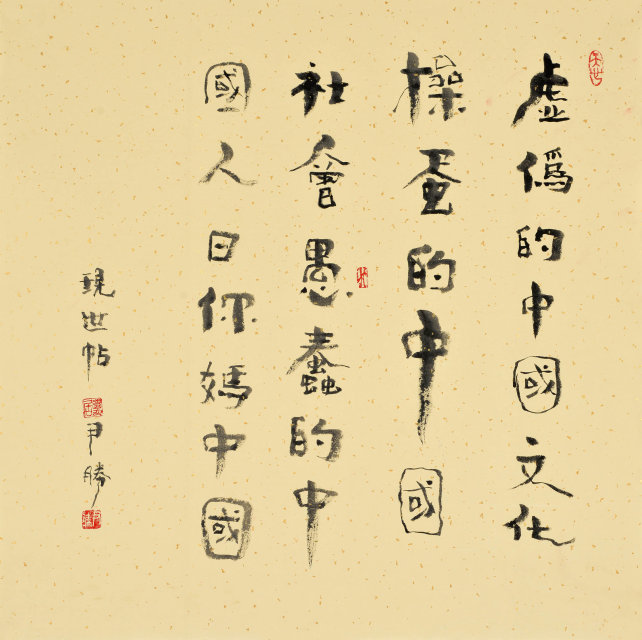 虛偽的中國文化
操蛋的中國
社會愚蠢的中
國人日你媽中國
現世帖
尹勝